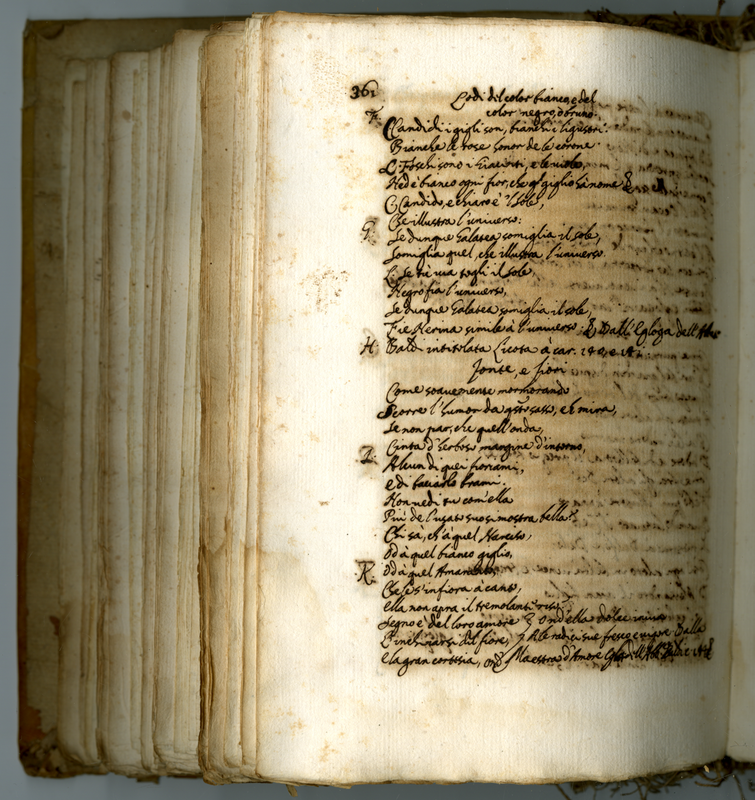 361
Lodi del color bianco, e del
color negro, o bruno.
F.
Candidi i gigli son, bianchi i ligustri.
Bianche le rose honor de le corone.
E Foschi sono i Giacinti, e le viole,
Ned'è bianco ogni fior, che di giglio hà nome &
C Candido, e chiaro è 'l sole,
Che illustra l'universo:
G.
Se dunque Galatea somiglia il sole,
Somiglia quel, che illustra l'universo.
E se tu via togli il sole,
Negro fia l'universo,
Se dunque Galatea somiglia il sole,
Fie Nerina simile à l'universo: & Dall'Egloga dell'Ab.
H.
Baldi intitolata Licota à car.
fonte, e fiori
Come soavemente mormorando
Scorre l'humor da qsto sasso, eh mira,
Se non par, che quell'onda,
Cinta d'herboso margine d'intorno,
I.
Alcun di quei fiori ami,
e di baciarlo brami.
Non vedi tu com'ella
Più de l'usato suo si mostra bella?
Chi sà, ch'à quel Narciso,
Od à quel bianco giglio,
K.
Od à quel Amaranto,
Che le s'infiora à canto,
ella non apra il tremolante riso?
Segno è del loro amore & Ond'ella dolce
L'inchinarsi del fiore, & A le radici sue fresco Dalla
e la gran cortesia, Maestra d'Amore